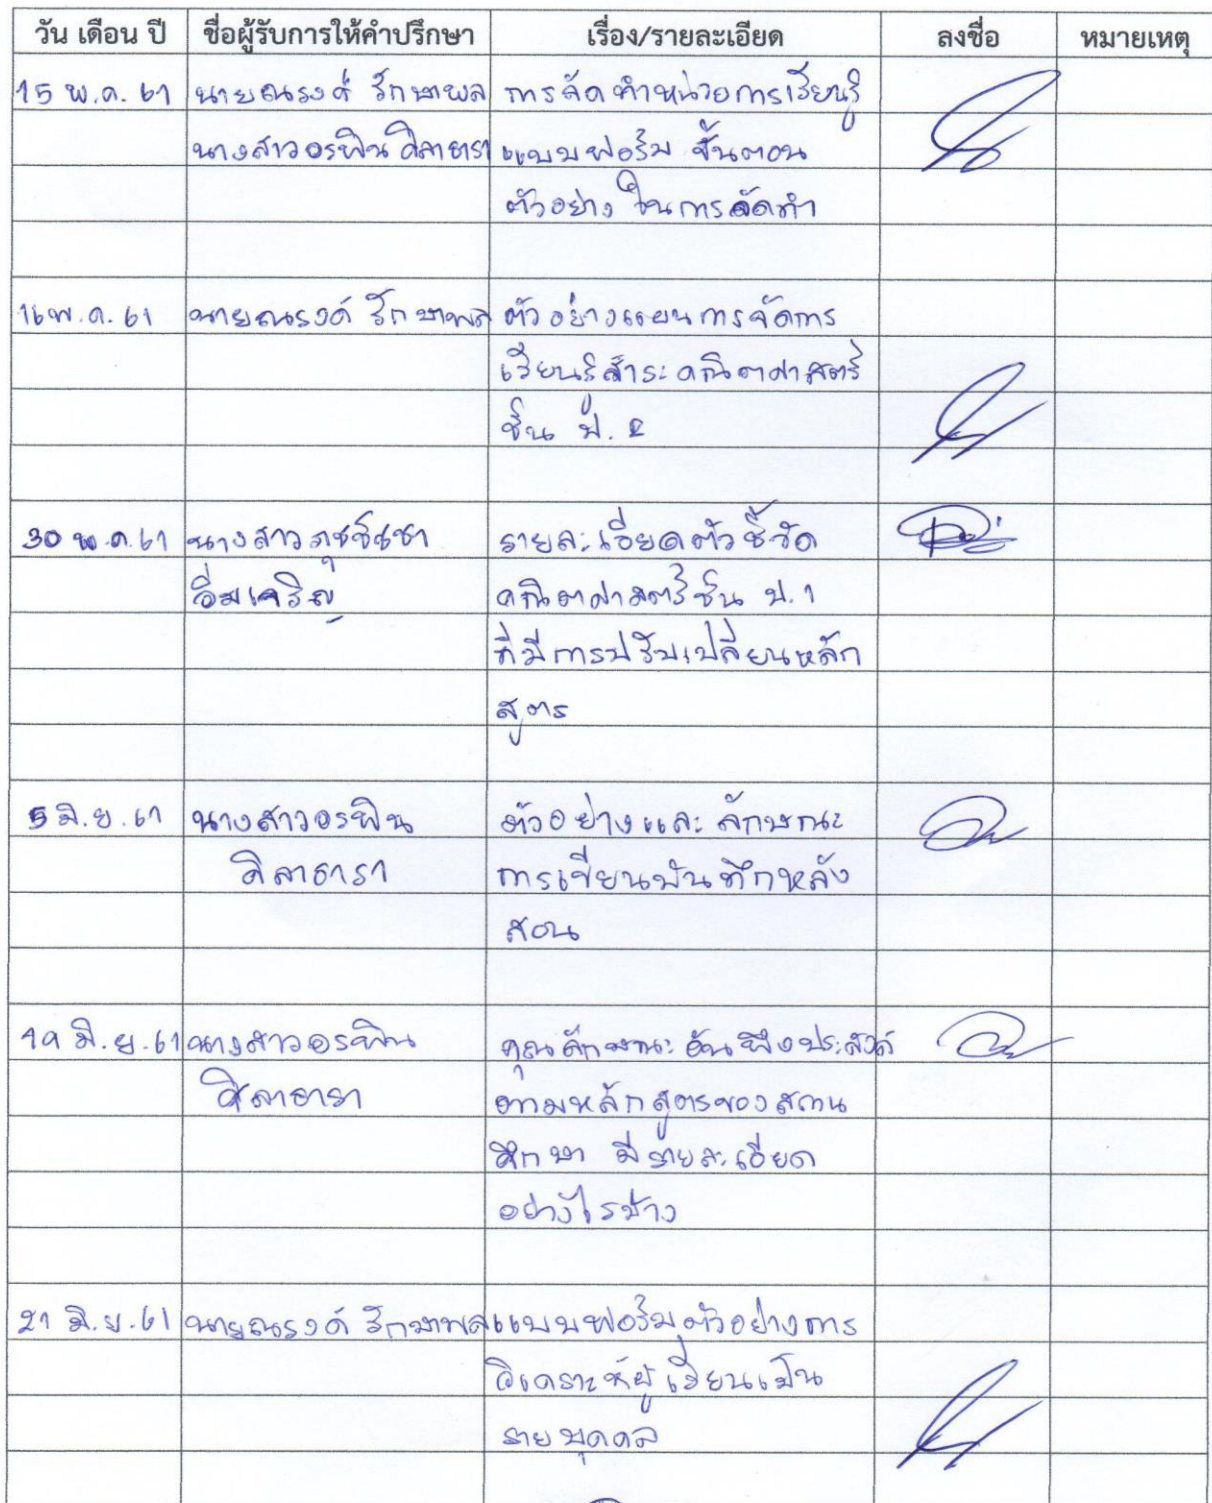 วัน เดือน ปี ชื่อผู้รับการให้คำปรึกษา เรื่อง/รายละเอียด ลงชื่อ หมายเหตุ
15 พ.ค. 61 นายณรงค์ รักษาพล การจัดทำหน่วยการเรียนรู้
นางสาวอรพิน ศิลาธารา แบบฟอร์ม ขั้นตอน
ตัวอย่าง ในการจัดทำ
16 พ.ค. 61 นายณรงค์ รักษาพล ตัวอย่างแผนการจัดการ
เรียนรู้สาระคณิตศาสตร์
ชั้น ป.2
30 พ.ค. 61 นางสาว รายละเอียดตัวชี้วัด
อิ่มเจริญ คณิตศาสตร์ชั้น ป.1
ที่มีการปรับเปลี่ยนหลัก
สูตร
5 มิ.ย. 61 นางสาวอรพิน ตัวอย่างและลักษณะ
ศิลาธารา การเขียนบันทึกหลัง
สอน
19 มิ.ย. 61 นางสาวอรพิน คุณลักษณะอันพึงประสงค์
ศิลาธารา ตามหลักสูตรของสถาน
ศึกษา มีรายละเอียด
อย่างไรบ้าง
21 มิ.ย. 61 นายณรงค์ รักษาพล แบบฟอร์ม ตัวอย่างการ
วิเคราะห์ผู้เรียนเป็น
รายบุคคล